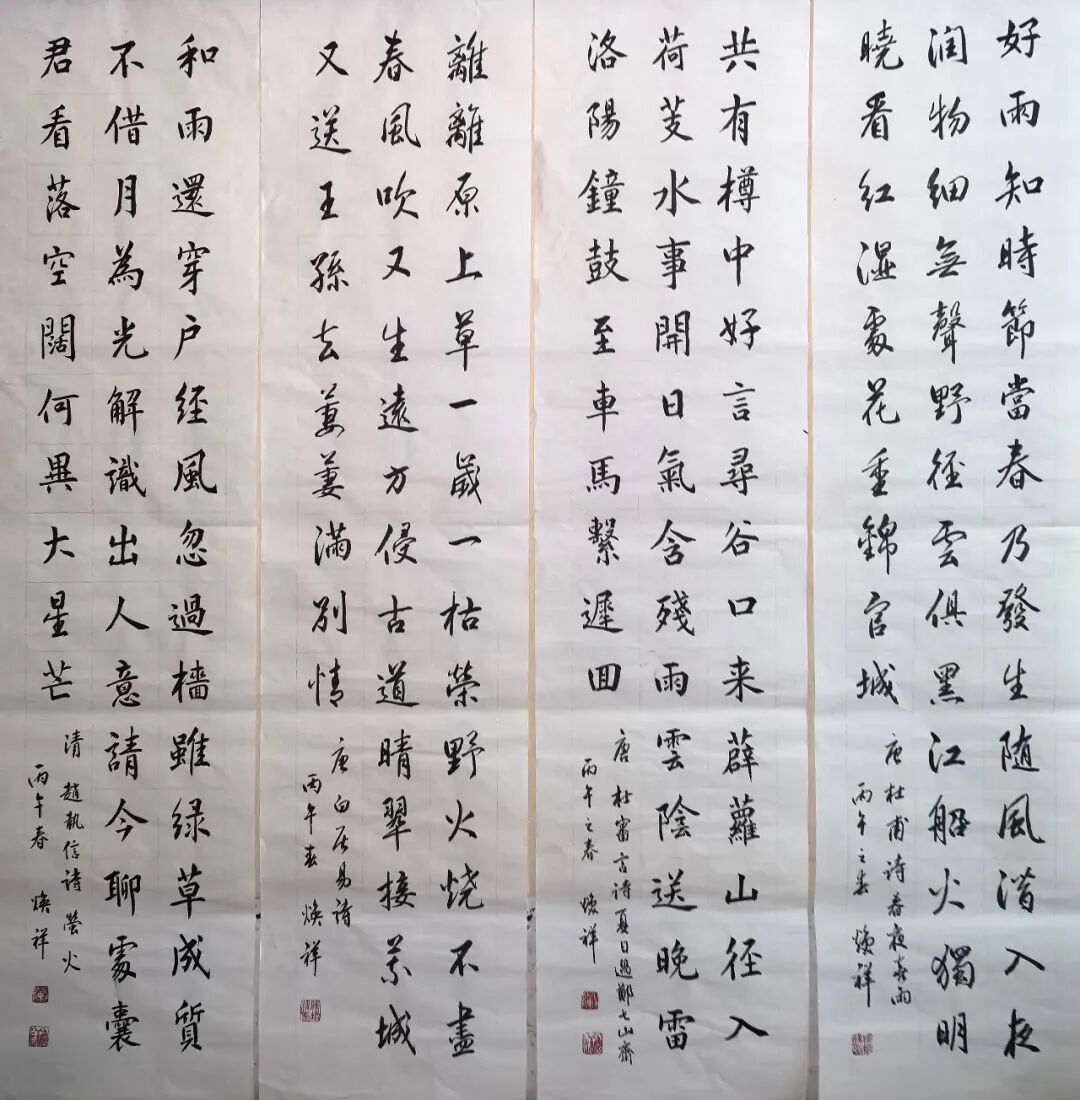 好雨知時節當春乃發生随風潜入夜
润物细無聲野径雲俱黑江船火獨明
曉看红濕處花重錦官城
唐杜甫诗春夜喜雨
丙午之春 焕祥
共有樽中好言尋谷口来薜蘿山径入
荷芰水事開日氣含殘雨雲陰送晚雷
洛陽鐘鼓至車馬繫遲回
唐 杜審言诗夏日過鄭七山齋
丙午之春 焕祥
離離原上草一歲一枯榮野火烧不盡
春風吹又生遠方侵古道晴翠接荒城
又送王孫去萋萋滿别情
唐白居易诗
丙午春 焕祥
和雨還穿户経風忽過檣雖緑草成質
不借月為光解識出人意請今聊處囊
君看落空闊何異大星芒
清 趙執信诗 螢火
丙午春 焕祥